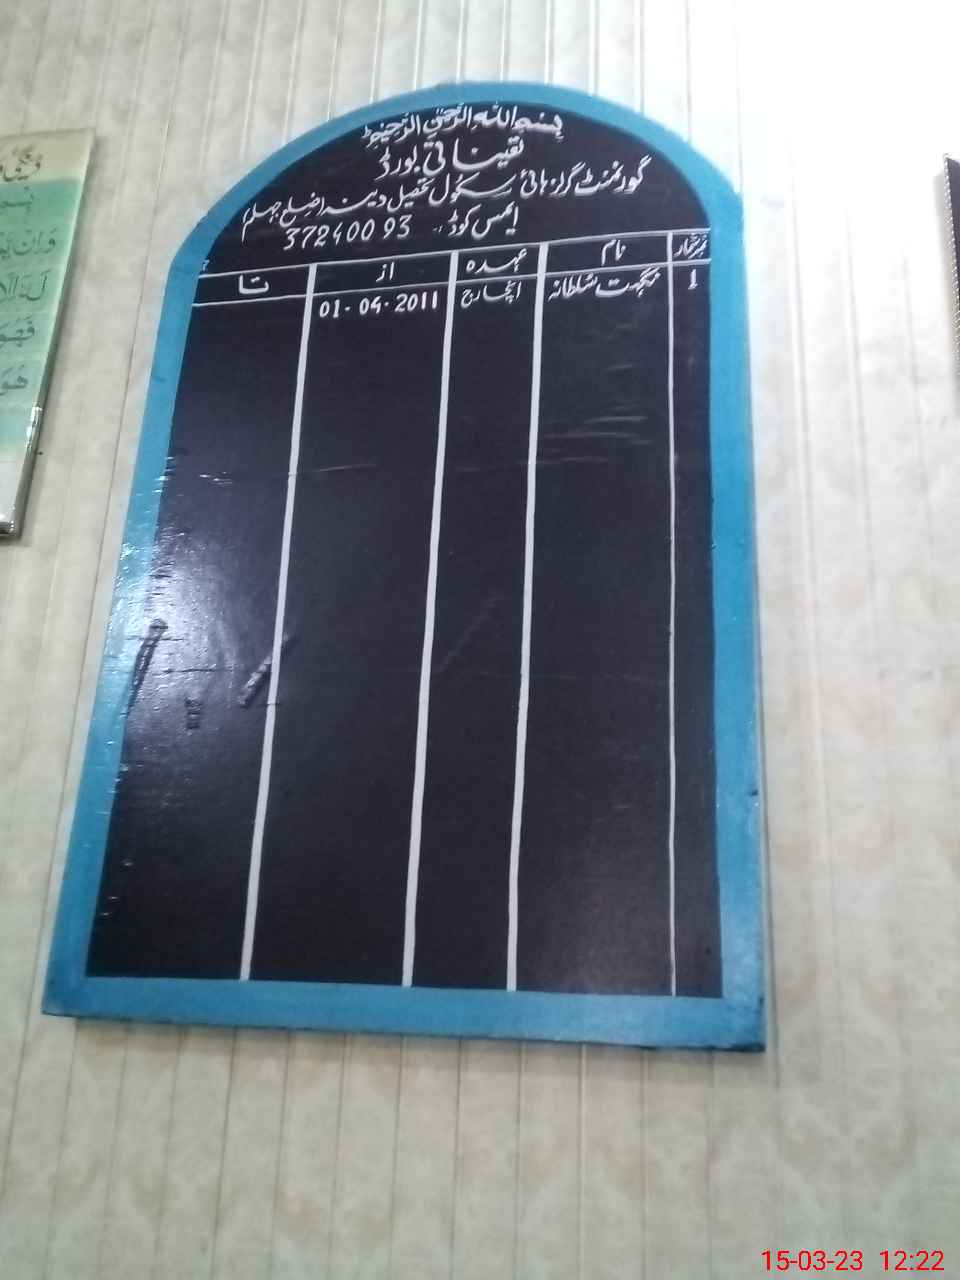 بسم اللہ الرحمن الرحیم
تعیناتی بورڈ
گورنمنٹ گرلز ہائی سکول تحصیل دینہ ضلع جہلم
ایمس کوڈ 37240093
نمبر شمار نام عہدہ از تا
1 نگہت سلطانہ انچارج 01-04-2011
15-03-23 12:22